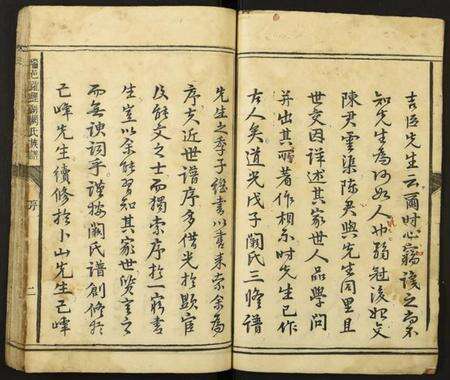 吉臣先生云爾時心竊識之第
知先生為何如人也弱冠後始交
陳君雲渠陳君與先生同里且
世交因詳述其家世人品學問
并出其所著作相示時先生已作
古人矣道光戊子闕氏三修譜
先生之季子繼書以書來索余為
序夫近世譜序多借光於顯宦
及能文之士而獨索序於一窮書
生豈以余能習知其家世質言之
而無諛詞乎謹按闕氏譜創修於
己峰先生續修於卜山先生己峰
氏族譜
序
二